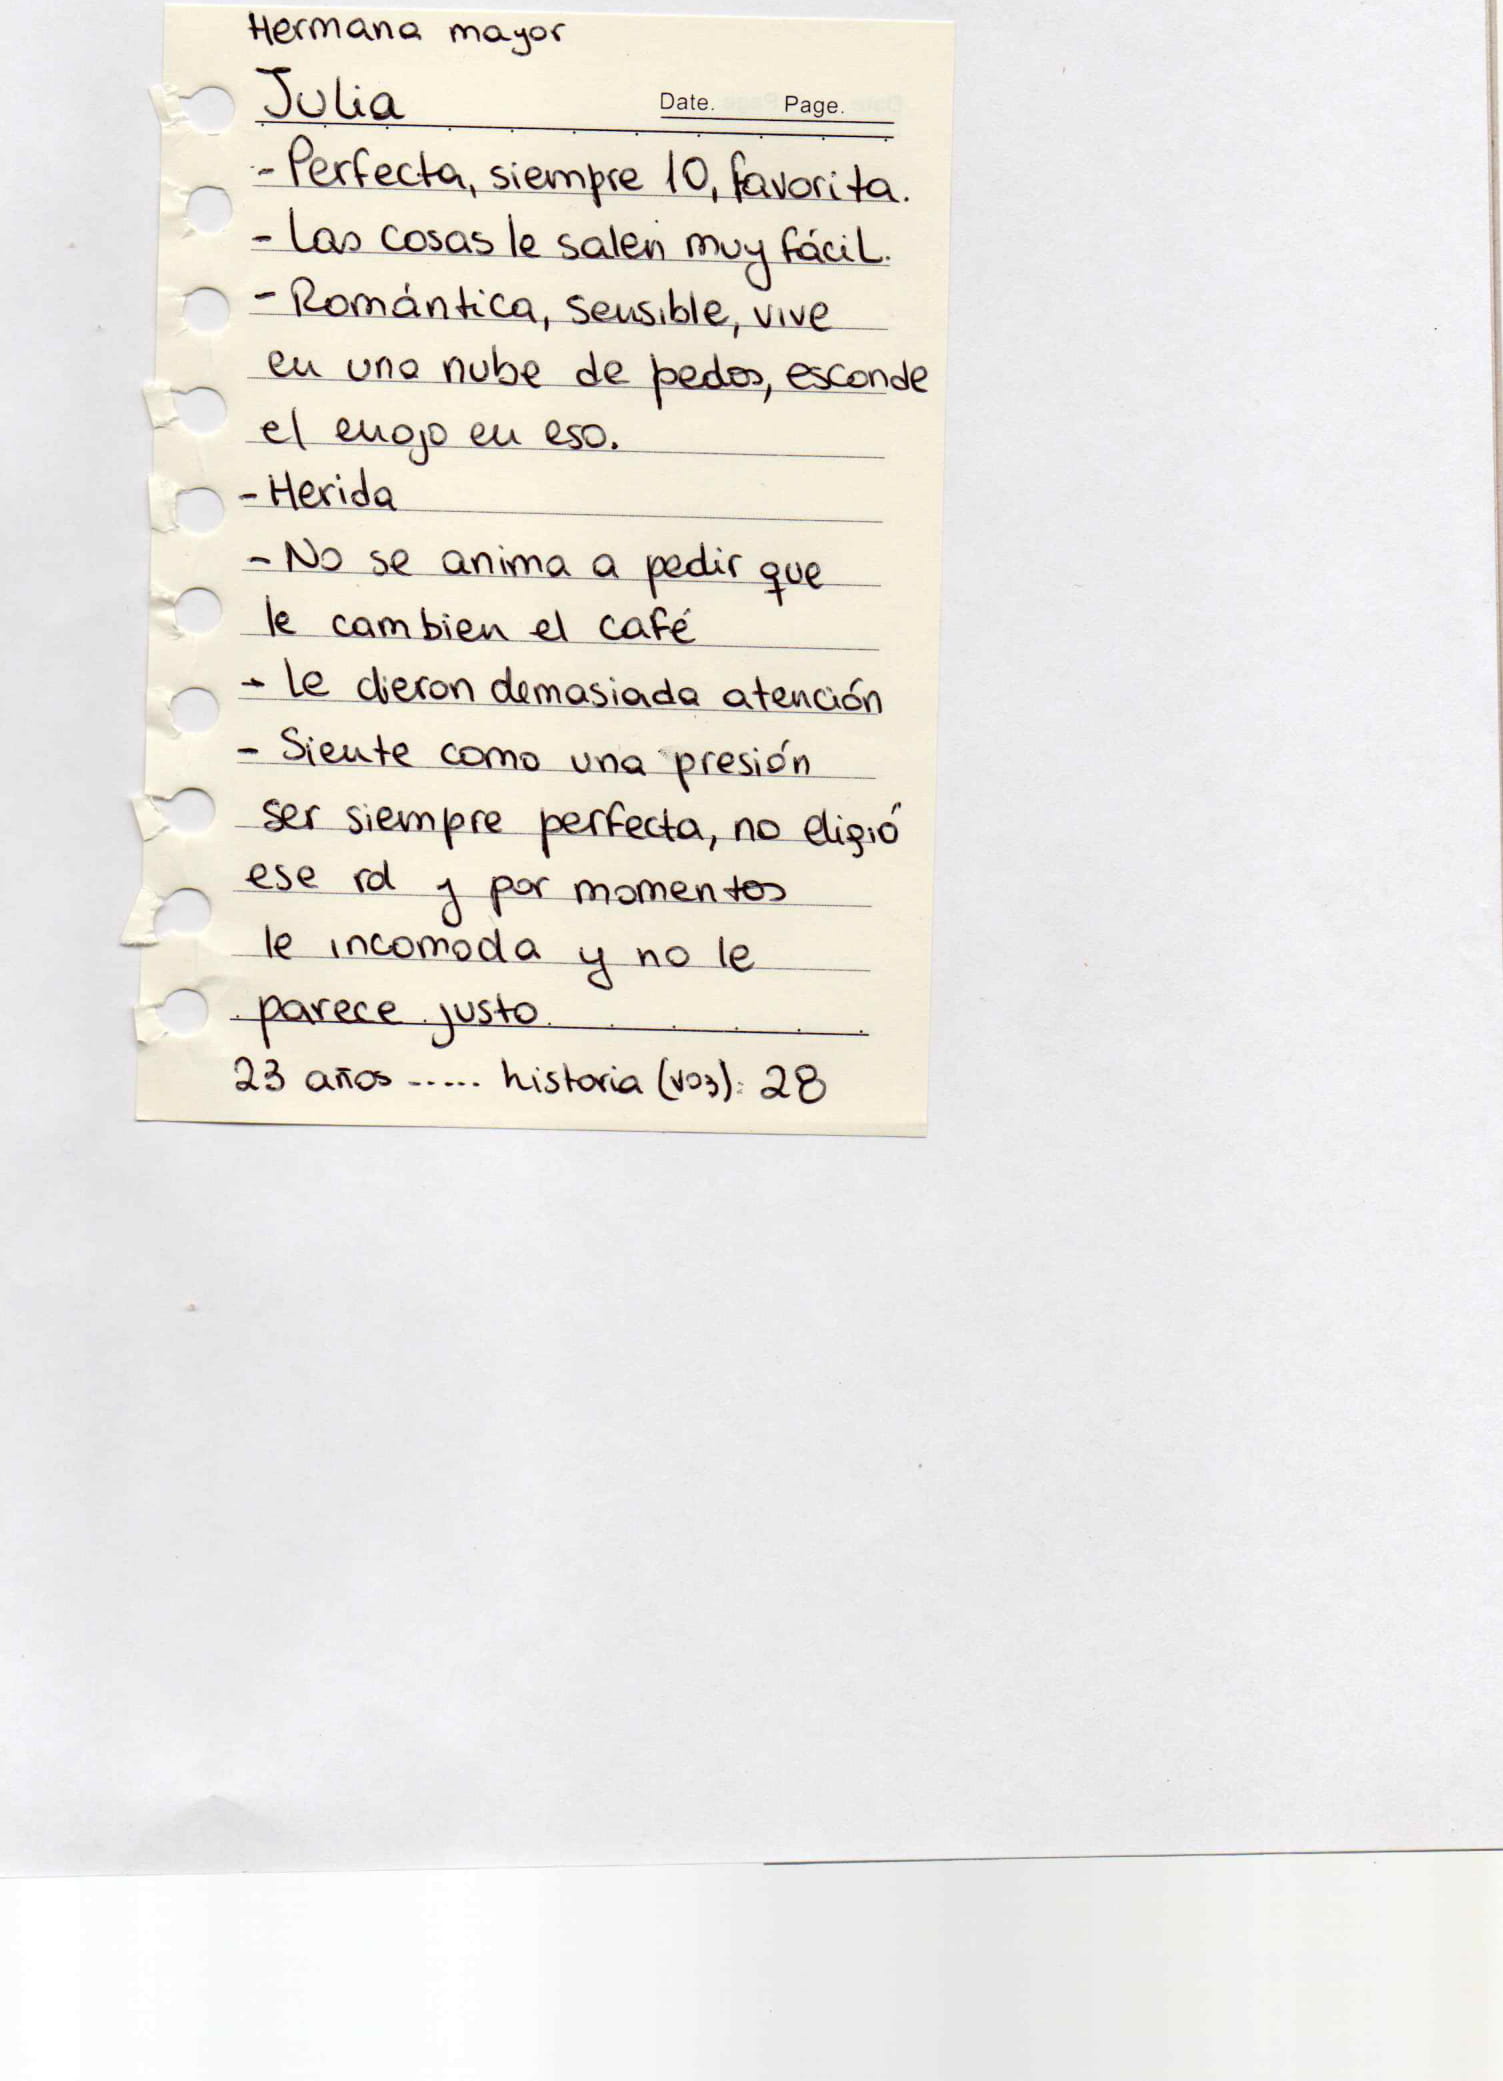 Hermana mayor
Julia
Date. Page.
- Perfecta, siempre 10, favorita.
- Las cosas le salen muy fácil.
- Romántica, sensible, vive
en una nube de pedos, esconde
el enojo en eso.
- Herida
- No se anima a pedir que
le cambien el café
- Le dieron demasiada atención
- Siente como una presión
ser siempre perfecta, no eligió
ese rol y por momentos
le incomoda y no le
parece justo
23 años ..... historia (voz): 28